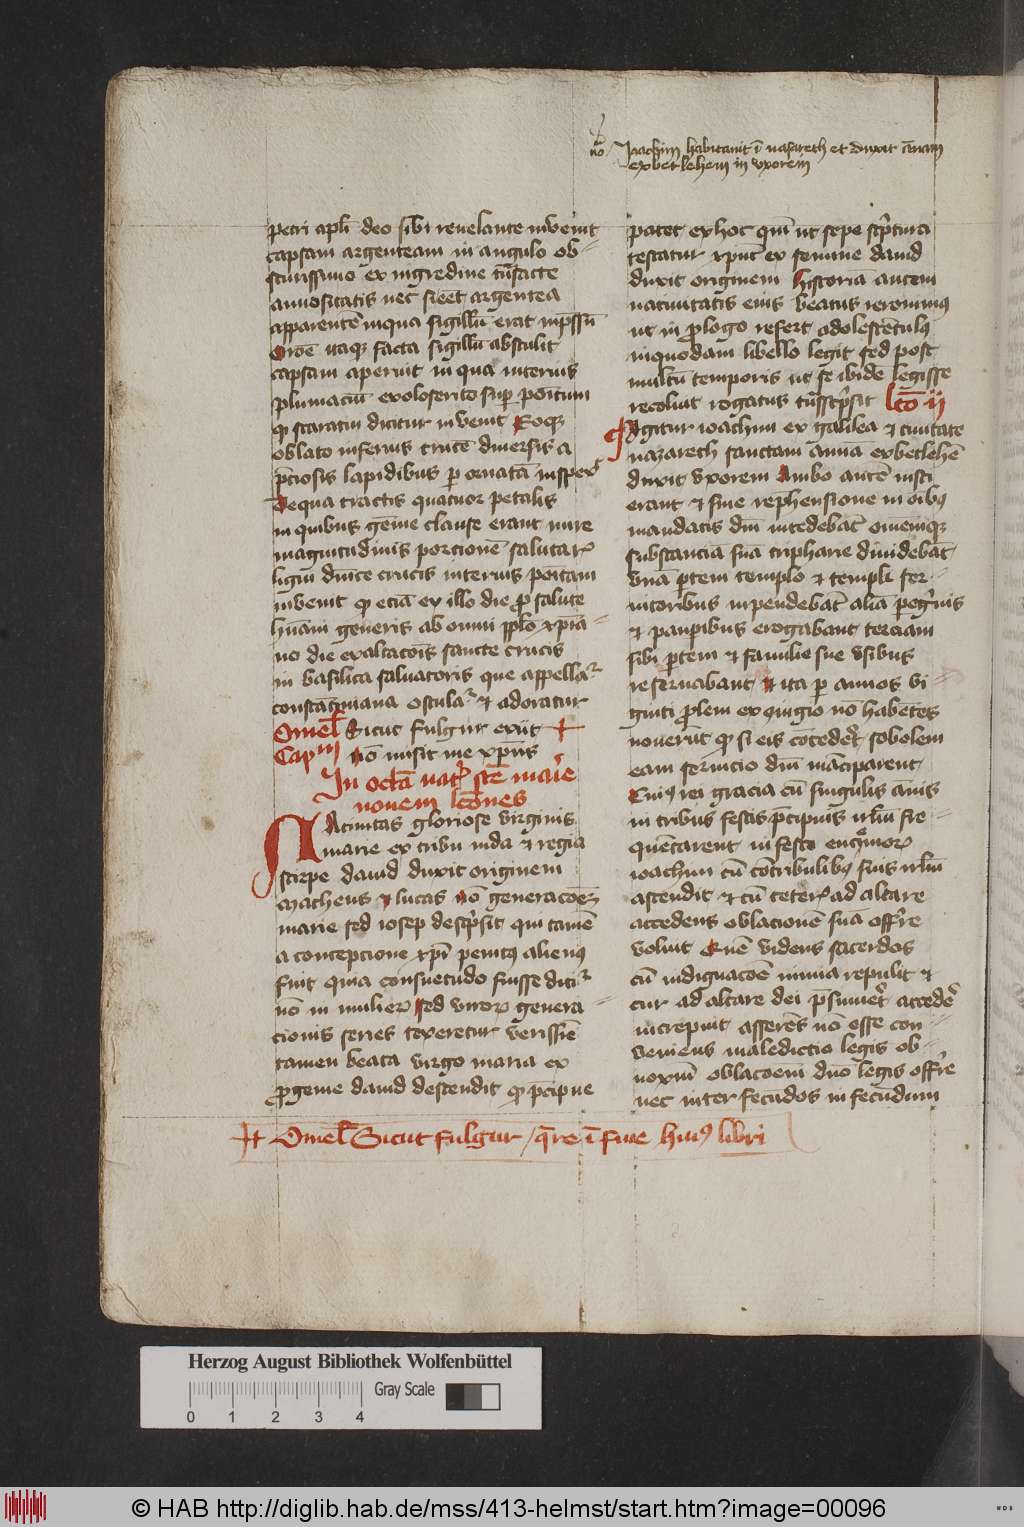 no Joachim habitauit ī nazareth et duxit annam
ex betlehem in vxorem
petri apłi deo sibi reuelante inuenit
capsam argenteam in angulo ob-
scurissimo ex ingredine
annositatis nec sicet argentea
apparentē inqua sigillū erat inpssū
Oroē itaqꝫ facta sigillū abstulit
capsam aperuit in qua interius
plumaciū exoloserito sup poitum
qꝫ stauratiu dicitur inuenit Eoqꝫ
oblato inferius crucē diuersis a
p̄ciosis lapidibus p ornatā inspex
Dequa tractis quatuor petalis
in quibus geme clause erant mire
magnitudinis porcionē salutar
ligni dnīce crucis interius poitam
inuenit qꝫ eciā ex illo die ꝓ salute
huāni generis ab omni pplo xpia-
no die exaltacōis sancte crucis
in basilica saluatoris que appella
constātiniana osculat & adoratur
Omeł Sicut fulgur exiit
Capm Nō misit me xpus
In octā nat scē marie
nouem lcōnes
Natiuitas gloriose virginis
marie ex tribu iuda & regia
stirpe dauid duxit originem
Matheus & lucas nō generacōeꝫ
marie sed iosep descpsit qui tamē
a concepcione xpī penitꝰ alienꝰ
fuit quia consuetudo fuisse dicit
nō in mulieꝝ sed viroꝝ genera-
cionis series texeretur verissīe
tamen beata virgo maria ex
ꝓgenie dauid descendit qꝫ pcipue
patet ex hoc quī ut sepe scptura
testatur xpus ex semine dauid
duxit originem historia autem
natiuitatis eius beatus ieronimꝰ
ut in ꝓlogo refert adolescētulꝰ
in quodam libello legit sed post
multū temporis ut se ibidē legisse
recoluit rogatus tnsscpsit lcō ij
Igitur ioachim ex galilea & ciuitate
nazareth sanctam annā ex betlehē
duxit vxorem Ambo autē iusti
erant & sine rephensione in oībꝰ
mandatis dnī incedebāt omēmqꝫ
substancia suā tripharie diuidebāt
vnā ptem templo & templi ser-
uitoribus inpendebāt aliā pegnis
& paupibus erogabant terciam
sibi ptem & familie sue vsibus
reseruabant & ita p annos vi-
ginti ꝓlem ex quigio nō habētes
nouerūt qꝫ si eis cōcedet sobolem
eam seruicio dnī māciparent
Cuiꝰ rei gracia cū singulis ānis
in tribus festis p̄cipuis irłm fre-
quētarent in festo
ioachim cū cōtribulibꝰ suis irłm
ascendit & cū ceteꝝ ad altare
accedens oblacionē suā offre
voluit Quē videns sacerdos
cū indignacōē nimia repulit &
cur ad altare dei psumet accedē
increpuit asserēs nō esse con-
veniens maledictio legis ob-
noxiū oblacōem dnō legis offre
nec inter fecūdos in fecūdum
Omeł Sicut fulgur / qre ī fine huiꝰ libri
Herzog August Bibliothek Wolfenbüttel
Gray Scale
0 1 2 3 4
© HAB http://diglib.hab.de/mss/413-helmst/start.htm?image=00096